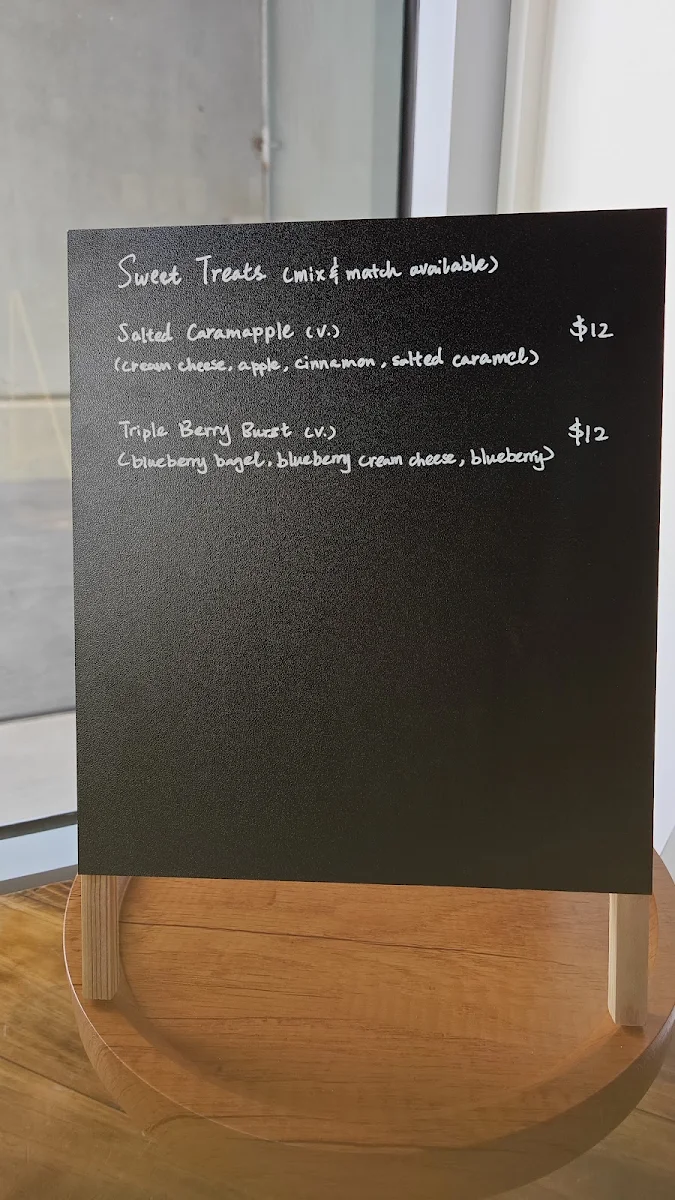 Sweet Treats (mix & match available)
Salted Caramapple (v.) $12
(cream cheese, apple, cinnamon, salted caramel)
Triple Berry Burst (v.) $12
(blueberry bagel, blueberry cream cheese, blueberry)